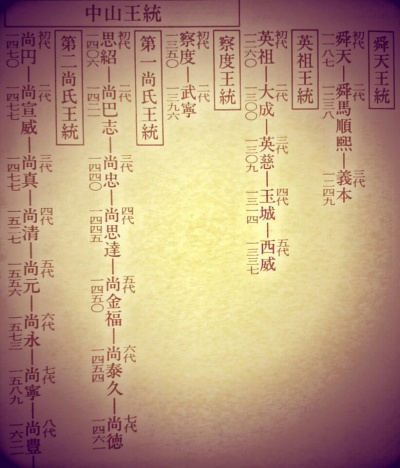 中山王統
舜天王統
初代 二代 三代
舜天―舜馬順熙―義本
一一八七 一二三八 一二四九
英祖王統
初代 二代 三代 四代 五代
英祖―大成―英慈―玉城―西威
一二六〇 一三〇〇 一三〇九 一三一四 一三三七
察度王統
初代 二代
察度―武寧
一三五〇 一三九六
第一尚氏王統
初代 二代 三代 四代 五代 六代 七代
思紹―尚巴志―尚忠―尚思達―尚金福―尚泰久―尚徳
一四〇六 一四二二 一四四〇 一四四五 一四五〇 一四五四 一四六一
第二尚氏王統
初代 二代 三代 四代 五代 六代 七代 八代
尚円―尚宣威―尚真―尚清―尚元―尚永―尚寧―尚豊
一四七〇 一四七七 一四七七 一五二七 一五五六 一五七三 一五八九 一六二一